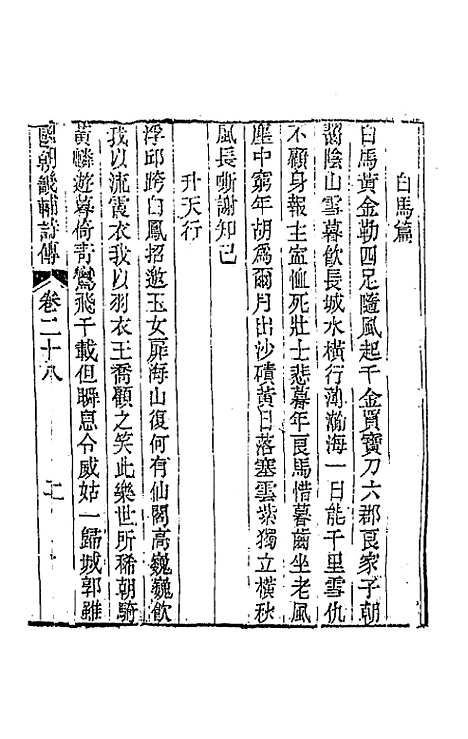 白馬篇
白馬黃金勒四足隨風起千金買寶刀六郡良家子朝
齧陰山雪暮飲長城水橫行薄瀚海一日能千里雪仇
不顧身報主寧恤死壯士悲暮年良馬惜暮齒坐老風
塵中窮年胡為爾月出沙磧黃日落塞雲紫獨立橫秋
風長嘶謝知己
升天行
浮邱跨白鳳招邀玉女扉海山復何有仙閣高巍巍飲
我以流霞衣我以羽衣王喬顧之笑此樂世所稀朝騎
黃麟遊暮倚青鸞飛千載但瞬息令威姑一歸城郭雖
國朝畿輔詩傳 卷二十八